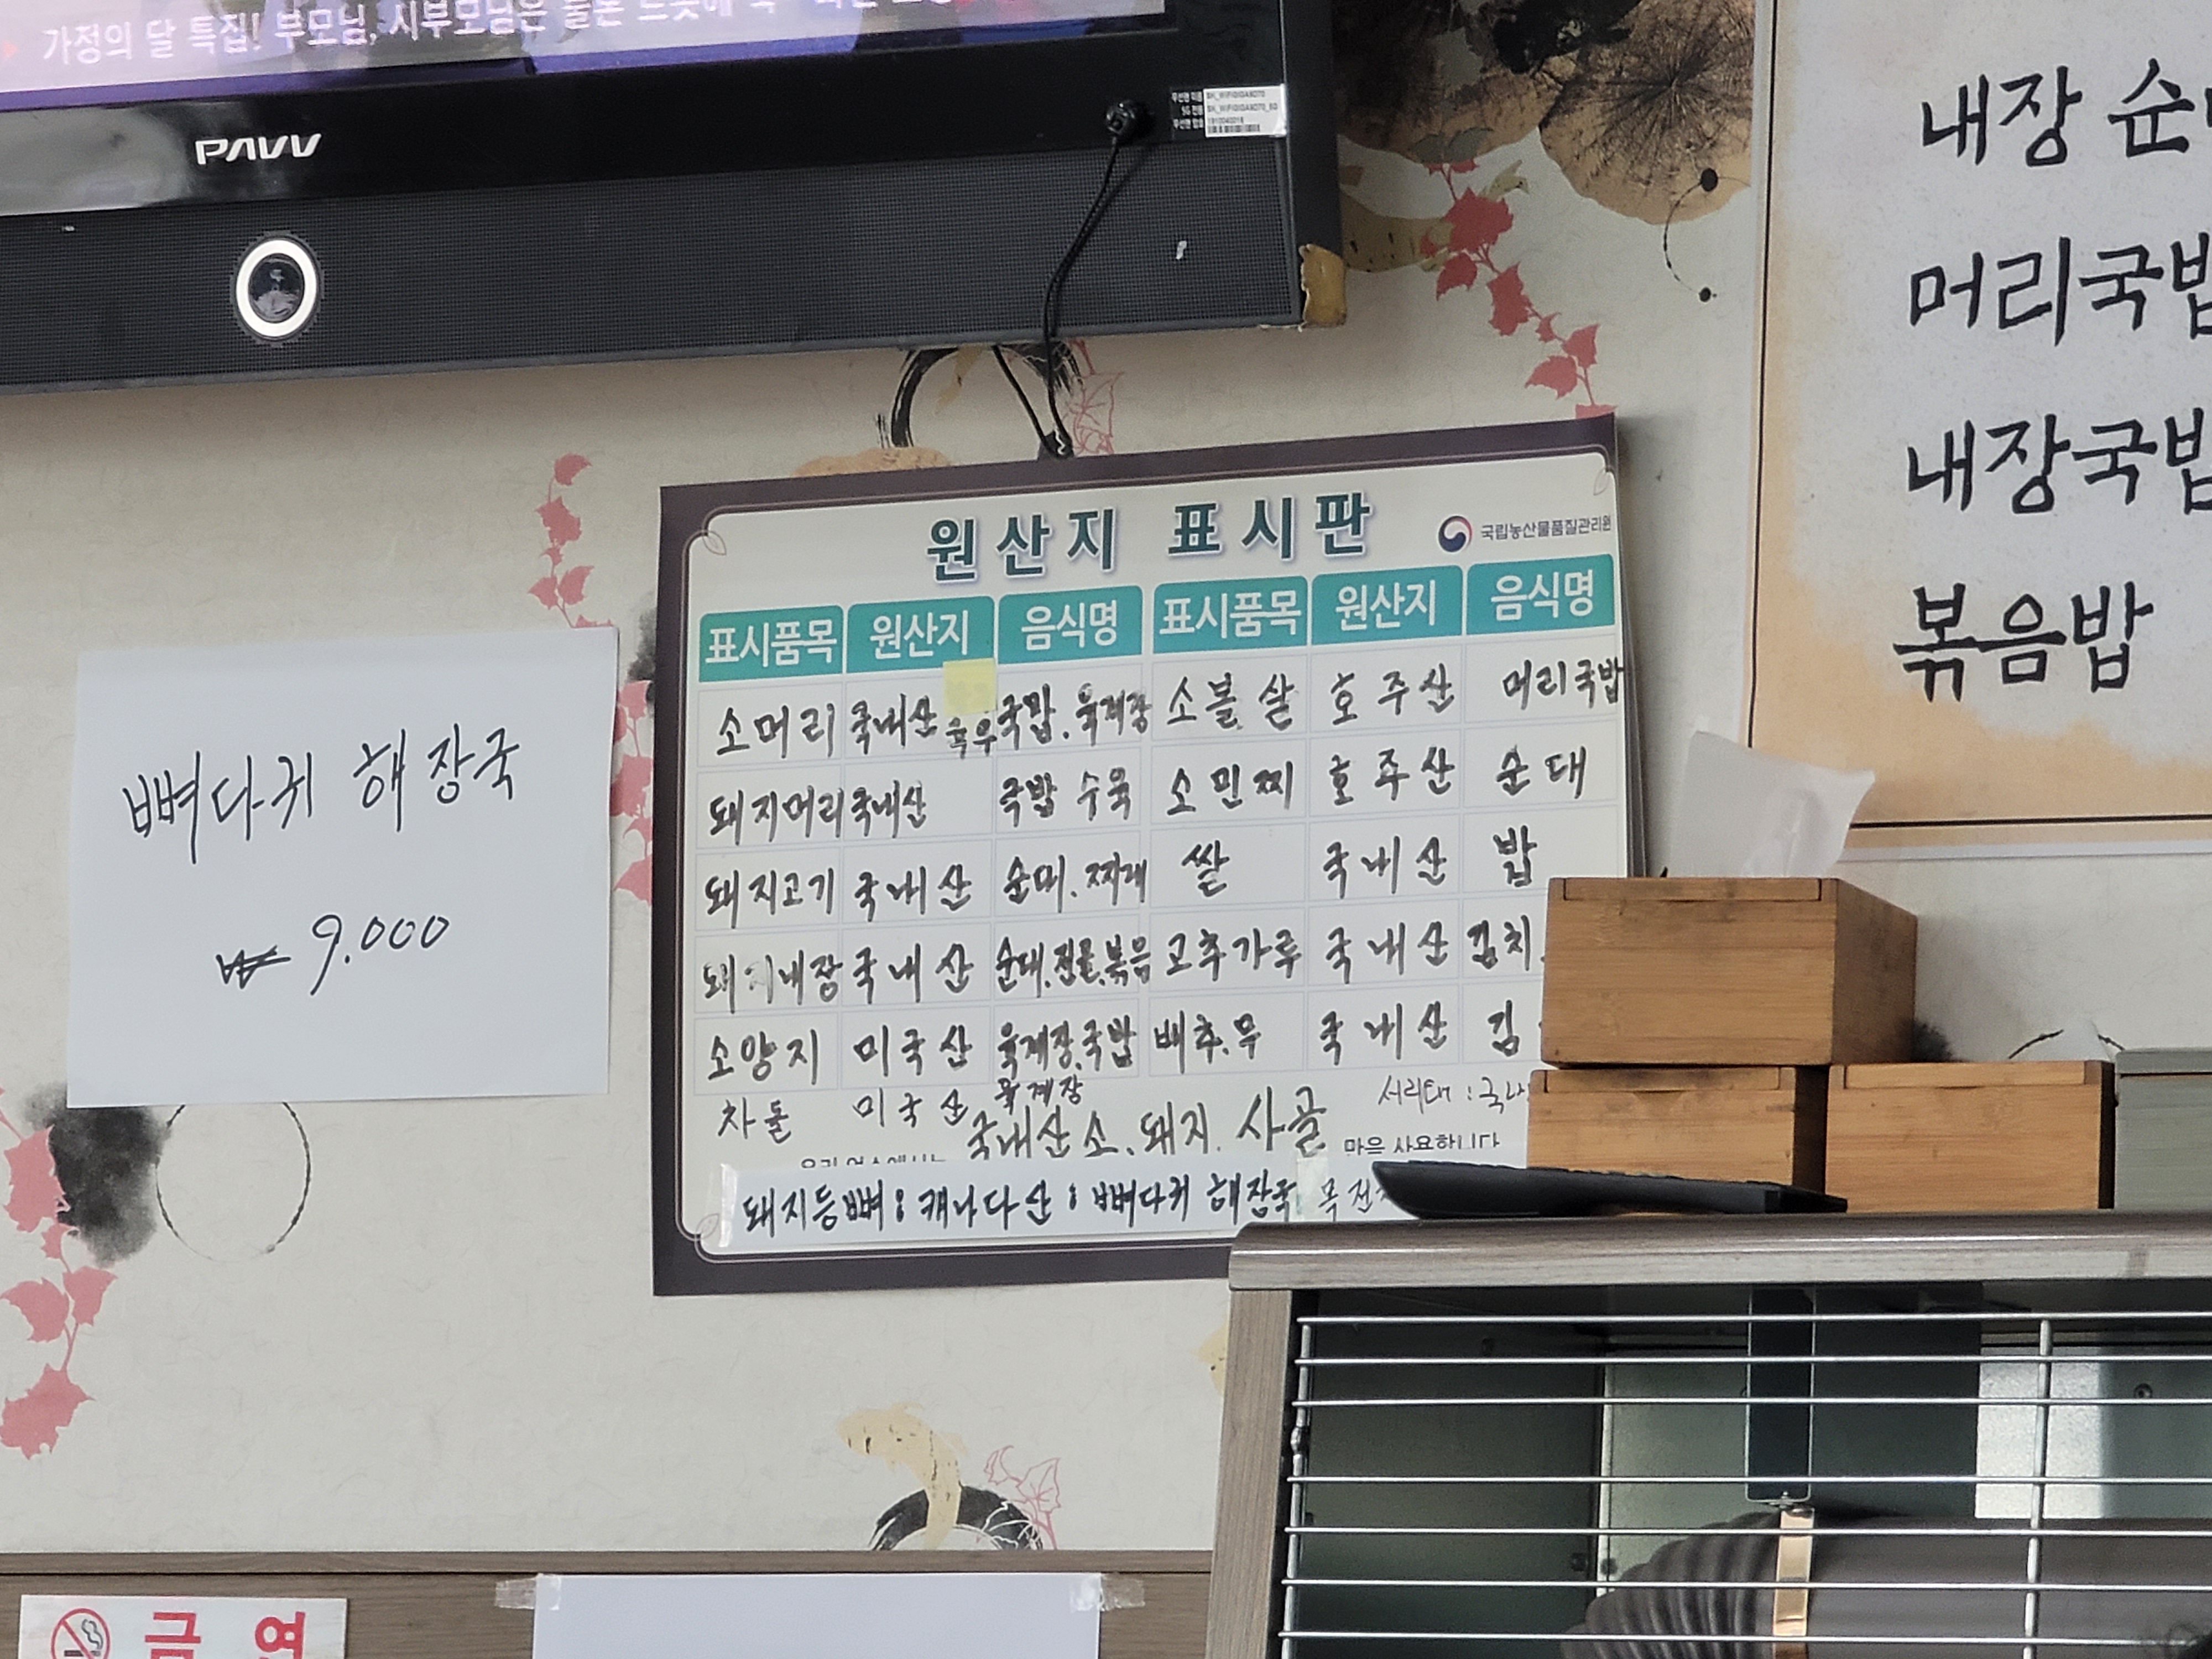 가정의 달 특집! 부모님, 시부모님은
PAVV
내장
머리국밥
내장국밥
볶음밥
뼈다귀 해장국
₩ 9.000
원산지 표시판
국립농산물품질관리원
표시품목 원산지 음식명 표시품목 원산지 음식명
소머리 국내산 육우 국밥.육계장 소볼살 호주산 머리국밥
돼지머리 국내산 국밥 수육 소민찌 호주산 순대
돼지고기 국내산 순대.찌개 쌀 국내산 밥
돼지내장 국내산 순대.전골.볶음 고추가루 국내산 김치.
소양지 미국산 육계장.국밥 배추.무 국내산 김
차돌 미국산 육계장 서리태 : 국내
우리 업소에서는 국내산 소.돼지. 사골 만을 사용합니다
돼지등뼈 : 캐나다산 : 뼈다귀 해장국
금연